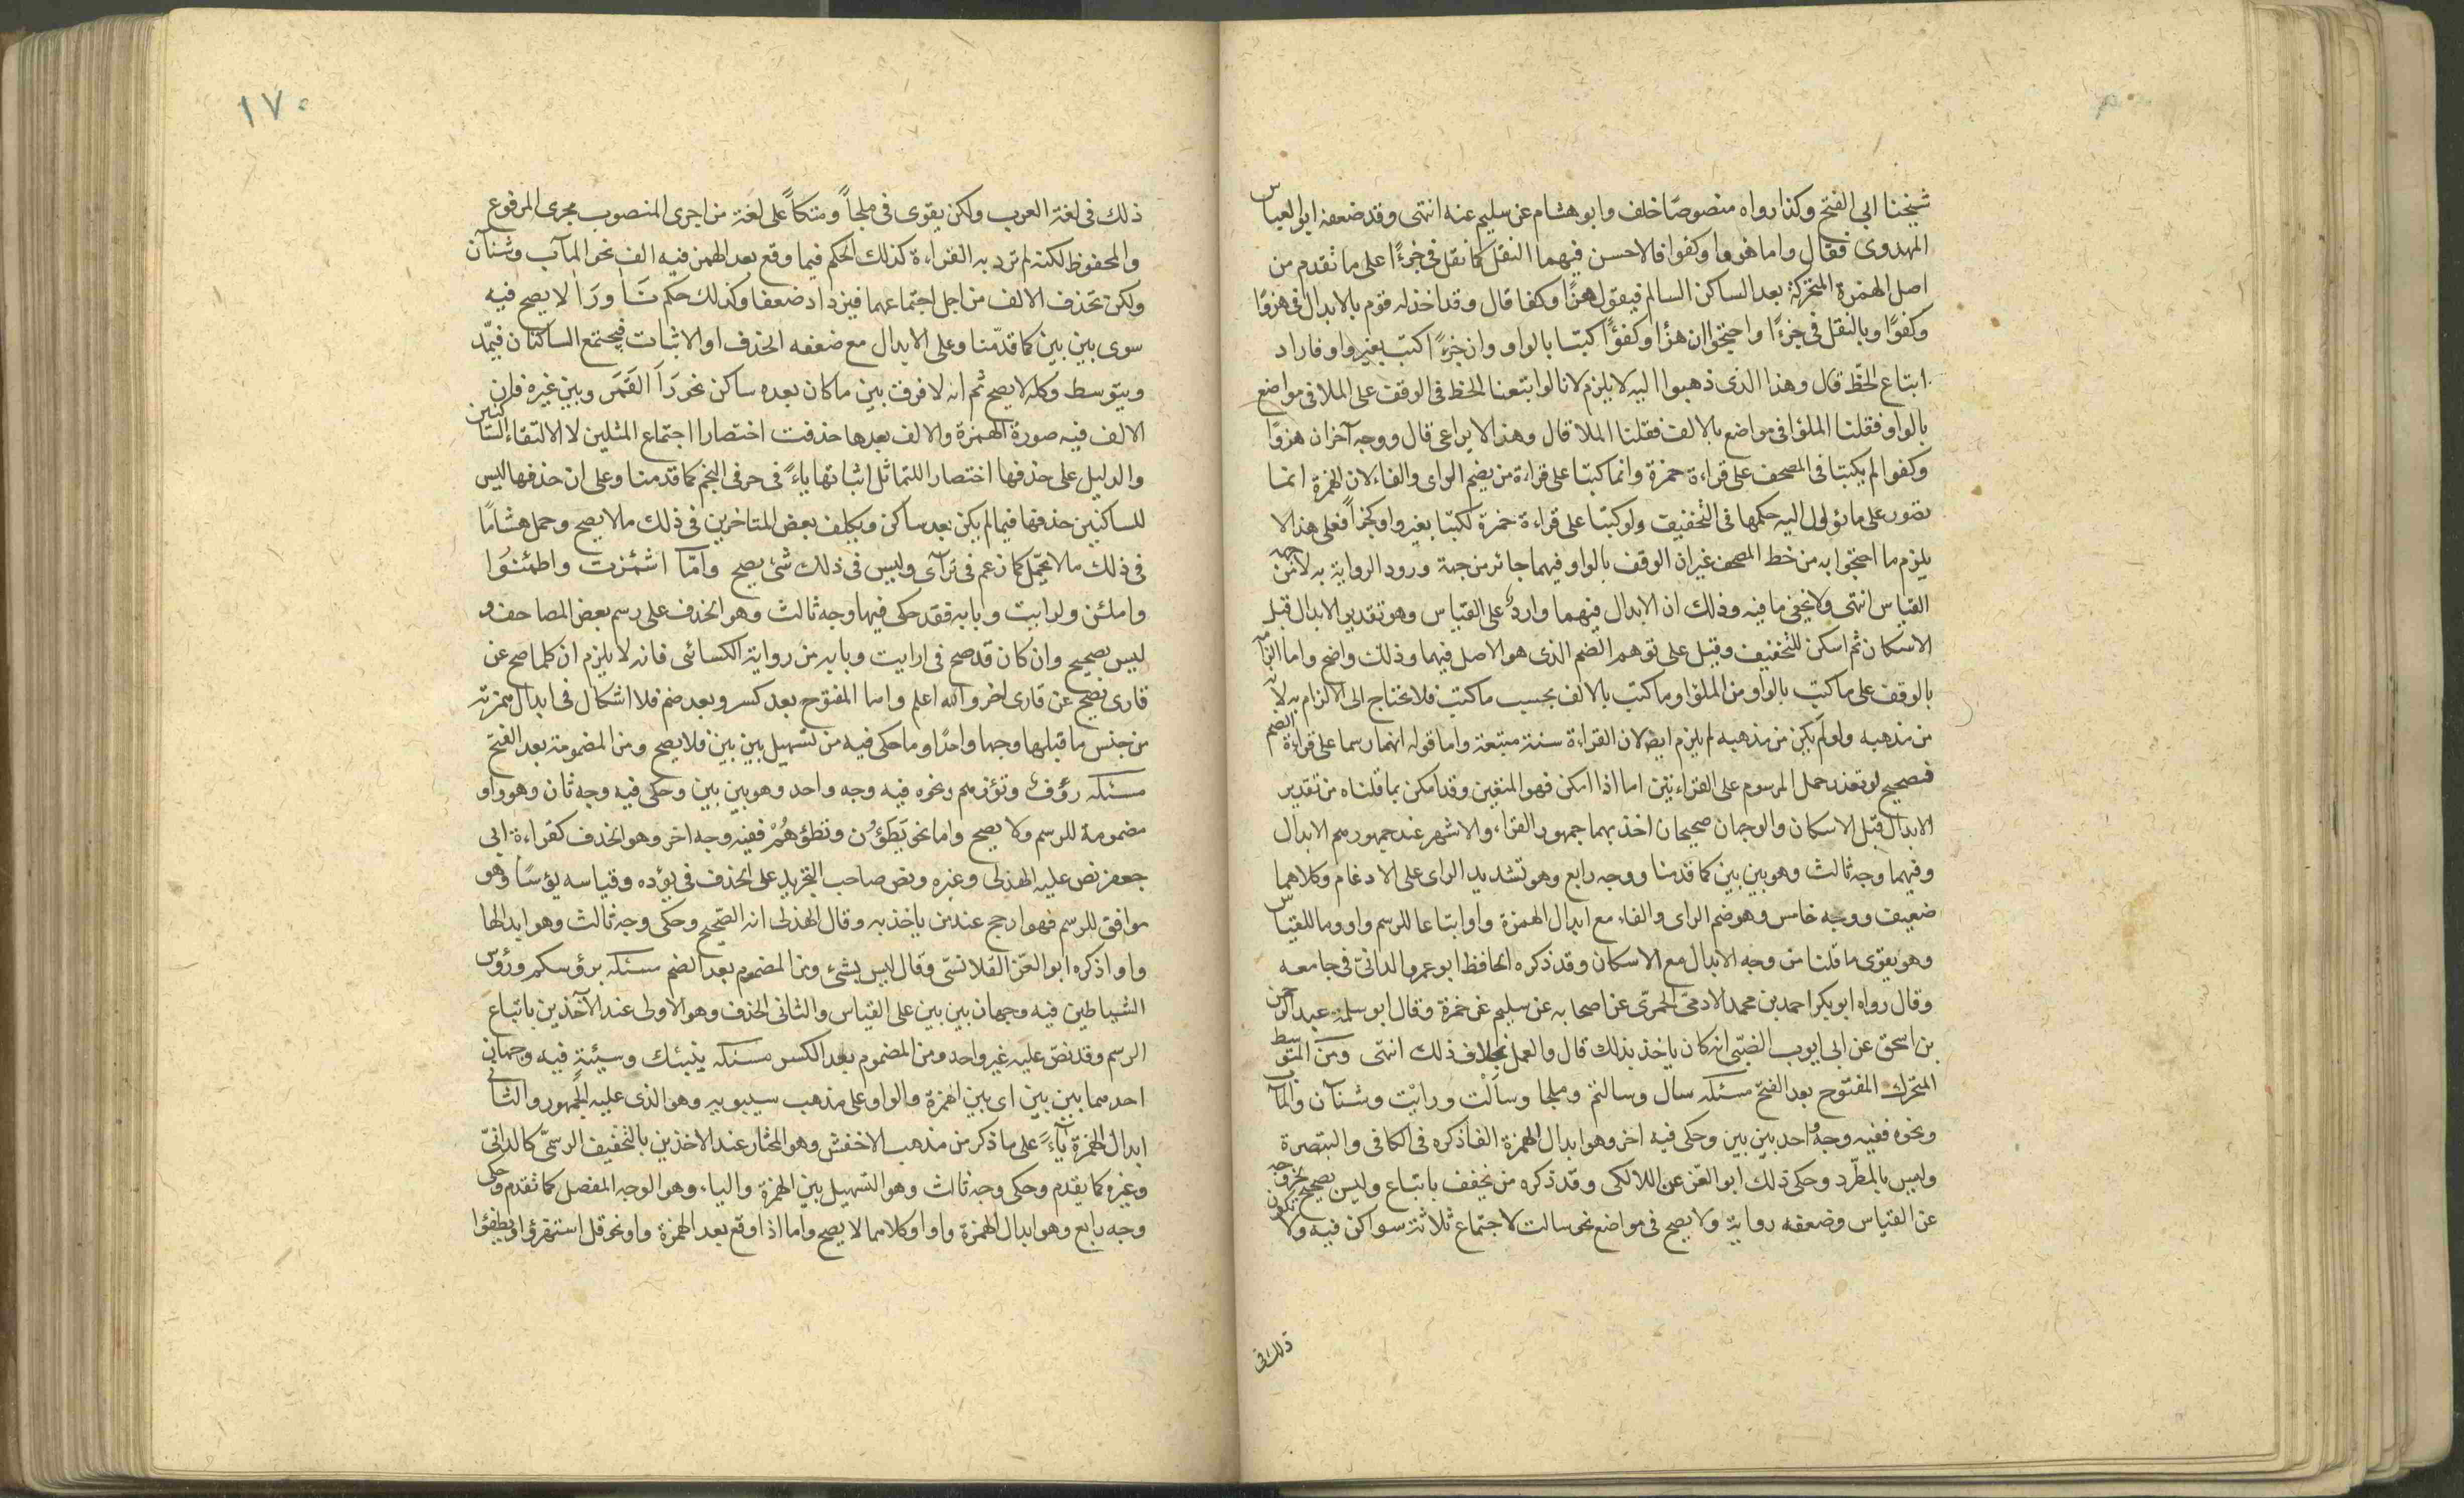 شيخنا ابى الفتح وكذا رواه منصوصا خلف وابو هشام عن سليم عنه انتهى وقد ضعفه ابو العباس
المهدوى فقال واما هزوا وكفوا فالاحسن فيهما النقل كما نقل فى جزءًا على ما تقدم من
اصل الهمزة المتحركة بعد الساكن السالم فيقول هزًا وكفا قال وقد اخذ له قوم بالابدال فى هزوًا
وكفوًا وبالنقل فى جزءًا واحتجوا ان هزؤا وكفؤًا كتبتا بالواو وان جزءً اكتب بغير واو فاراد
اتباع الخظّ قال وهذا الذى ذهبوا اليه لا يلزم لانا لو اتبعنا الخط فى الوقف على الملا فى مواضع
بالواو فقلنا الملؤا فى مواضع بالالف فقلنا الملا قال وهذا لا يراعى قال ووجه آخر ان هزوًا
وكفوا لم يكتبا فى المصحف على قراءة حمزة وانما كتبا على قراءة من يضم الزاى والفاء لان الهمزة انما
تصور على ما يؤول اليه حكمها فى التخفيف ولو كتبا على قراءة حمزة لكتبا بغير واو كجزأً فعلى هذا لا
يلزم ما احتجوا به من خط المصحف غير ان الوقف بالواو فيهما جائز من جهة ورود الرواية به لا من جهة
القياس انتهى ولا يخفى ما فيه وذلك ان الابدال فيهما واردٌ على القياس وهو تقدير الابدال قبل
الاسكان ثم اسكن للتخفيف وقيل على توهم الضم الذى هو الاصل فيهما وذلك واضح واما الزامه
بالوقف على ما كتب بالواو من الملؤا وما كتب بالالف بحسب ما كتب فلا يحتاج الى الالزام به لانه
من مذهبه ولو لم يكن من مذهبه لم يلزم ايضًا لان القراءة سنة متبعة واما قوله انهما رسما على قراءة الضم
فصحيح لو تعذر حمل المرسوم على القراءتين اما اذا امكن فهو المتعين وقد امكن بما قلناه من تقدير
الابدال قبل الاسكان والوجهان صحيحان اخذ بهما جمهور القراء والاشهر عند جمهورهم الابدال
وفيهما وجه ثالث وهو بين بين كما قدمنا ووجه رابع وهو تشديد الزاى على الادغام وكلاهما
ضعيف ووجه خامس وهو ضم الزاى والفاء مع ابدال الهمزة واوا اتباعا للرسم ولزوما للقياس
وهو يقوى ما قلنا من وجه الابدال مع الاسكان وقد ذكره الحافظ ابو عمرو الدانى فى جامعه
وقال رواه ابو بكر احمد بن محمد الادمى الحمزى عن اصحابه عن سليم عن حمزة وقال ابو سلمة عبد الرحمن
بن اسحق عن ابى ايوب الضبّى انه كان ياخذ بذلك قال والعمل بخلاف ذلك انتهى ومن المتوسط
المتحرك المفتوح بعد الفتح مسئلة سال وسالتم وملجا وسألت ورايت وشنآن والمآب
ونحوه ففيه وجه واحد بين بين وحكى فيه اخر وهو ابدال الهمزة الفا ذكره فى الكافى والتبصرة
وليس بالمطّرد وحكى ذلك ابو العز عن اللالكى وقد ذكره من يخفف باتباع وليس بصحيح لخروجه
عن القياس وضعفه رواية ولا يصح فى مواضع نحو سالت لاجتماع ثلاثة سواكن فيه ولا يكون
ذلك فى
١٧٠
ذلك فى لغة العرب ولكن يقوى فى ملجاً ومتكاً على لغة من اجرى المنصوب مجرى المرفوع
والمحفوظ لكنه لم ترد به القراءة كذلك الحكم فيما وقع بعد الهمز فيه الف نحو المآب وشنآن
ولكن تحذف الالف من اجل اجتماعهما فيزداد ضعفا وكذلك حكم نَأ ورَأ لا يصح فيه
سوى بين بين كما قدّمنا وعلى الابدال مع ضعفه الحذف او الاثبات فيجتمع الساكنان فيمّد
ويتوسط وكله لا يصح ثم انه لا فرق بين ما كان بعده ساكن نحو رَأَ القَمَرَ وبين غيره فان
الالف فيه صورة الهمزة والالف بعدها حذفت اختصارا لاجتماع المثلين لا لالتقاء الساكنين
والدليل على حذفها اختصارا للتماثل اثباتها ياءً فى حرفى النجم كما قدمنا وعلى ان حذفها ليس
للساكنين حذفها فيما لم يكن بعد ساكن وتكلف بعض المتاخرين فى ذلك ما لا يصح وحمل هشامًا
فى ذلك ما لا تحمّل كما زعم فى ترآى وليس فى ذلك شئ يصح وامّا اشمئزت واطمئنوا
واملئن ولرايت وبابه فقد حكى فيها وجه ثالث وهو الحذف على رسم بعض المصاحف و
ليس بصحيح وان كان قد صح فى ارايت وبابه من رواية الكسائى فانه لا يلزم ان كلما صح عن
قارى يصح عن قارى اخر والله اعلم واما المفتوح بعد كسر وبعد ضم فلا اشكال فى ابدال همزته
من جنس ما قبلها وجها واحدًا وما حكى فيه من تسهيل بين بين فلا يصح ومن المضمومة بعد الفتح
مسئلة رؤف وتؤزهم ونحوه فيه وجه واحد وهو بين بين وحكى فيه وجه ثان وهو واو
مضمومة للرسم ولا يصح واما نحو يَطَؤُن وتطؤهُمْ ففيه وجه اخر وهو الحذف كقراءة ابى
جعفر نص عليه الهذلى وغيره ونص صاحب التجريد على الحذف فى يؤده وقياسه يؤسًا وهو
موافق للرسم فهو ارجح عند من ياخذ به وقال الهذلى انه الصّحيح وحكى وجه ثالث وهو ابدالها
واوا ذكره ابو العزّ القلانسّى وقال ليس بشئ ومن المضموم بعد الضم مسئلة برؤسكم ورؤس
الشياطين فيه وجهان بين بين على القياس والثانى الحذف وهو الاولى عند الآخذين باتباع
الرسم وقد نصّ عليه غير واحد ومن المضموم بعد الكسر مسئلة ينبئك وسيئة فيه وجهان
احدهما بين بين اى بين الهمزة والواو على مذهب سيبويه وهو الذى عليه الجمهور والثانى
ابدال الهمزة يآءً على ما ذكر من مذهب الاخفش وهو المختار عند الاخذين بالتخفيف الرسمّى كالدانىّ
وغيره كما يقدم وحكى وجه ثالث وهو التسهيل بين الهمزة والياء وهو الوجه المفصل كما تقدم وحكى
وجه رابع وهو ابدال الهمزة واوا وكلاهما لا يصح واما اذا وقع بعد الهمزة واو نحو قل استهزؤا ويطفؤا